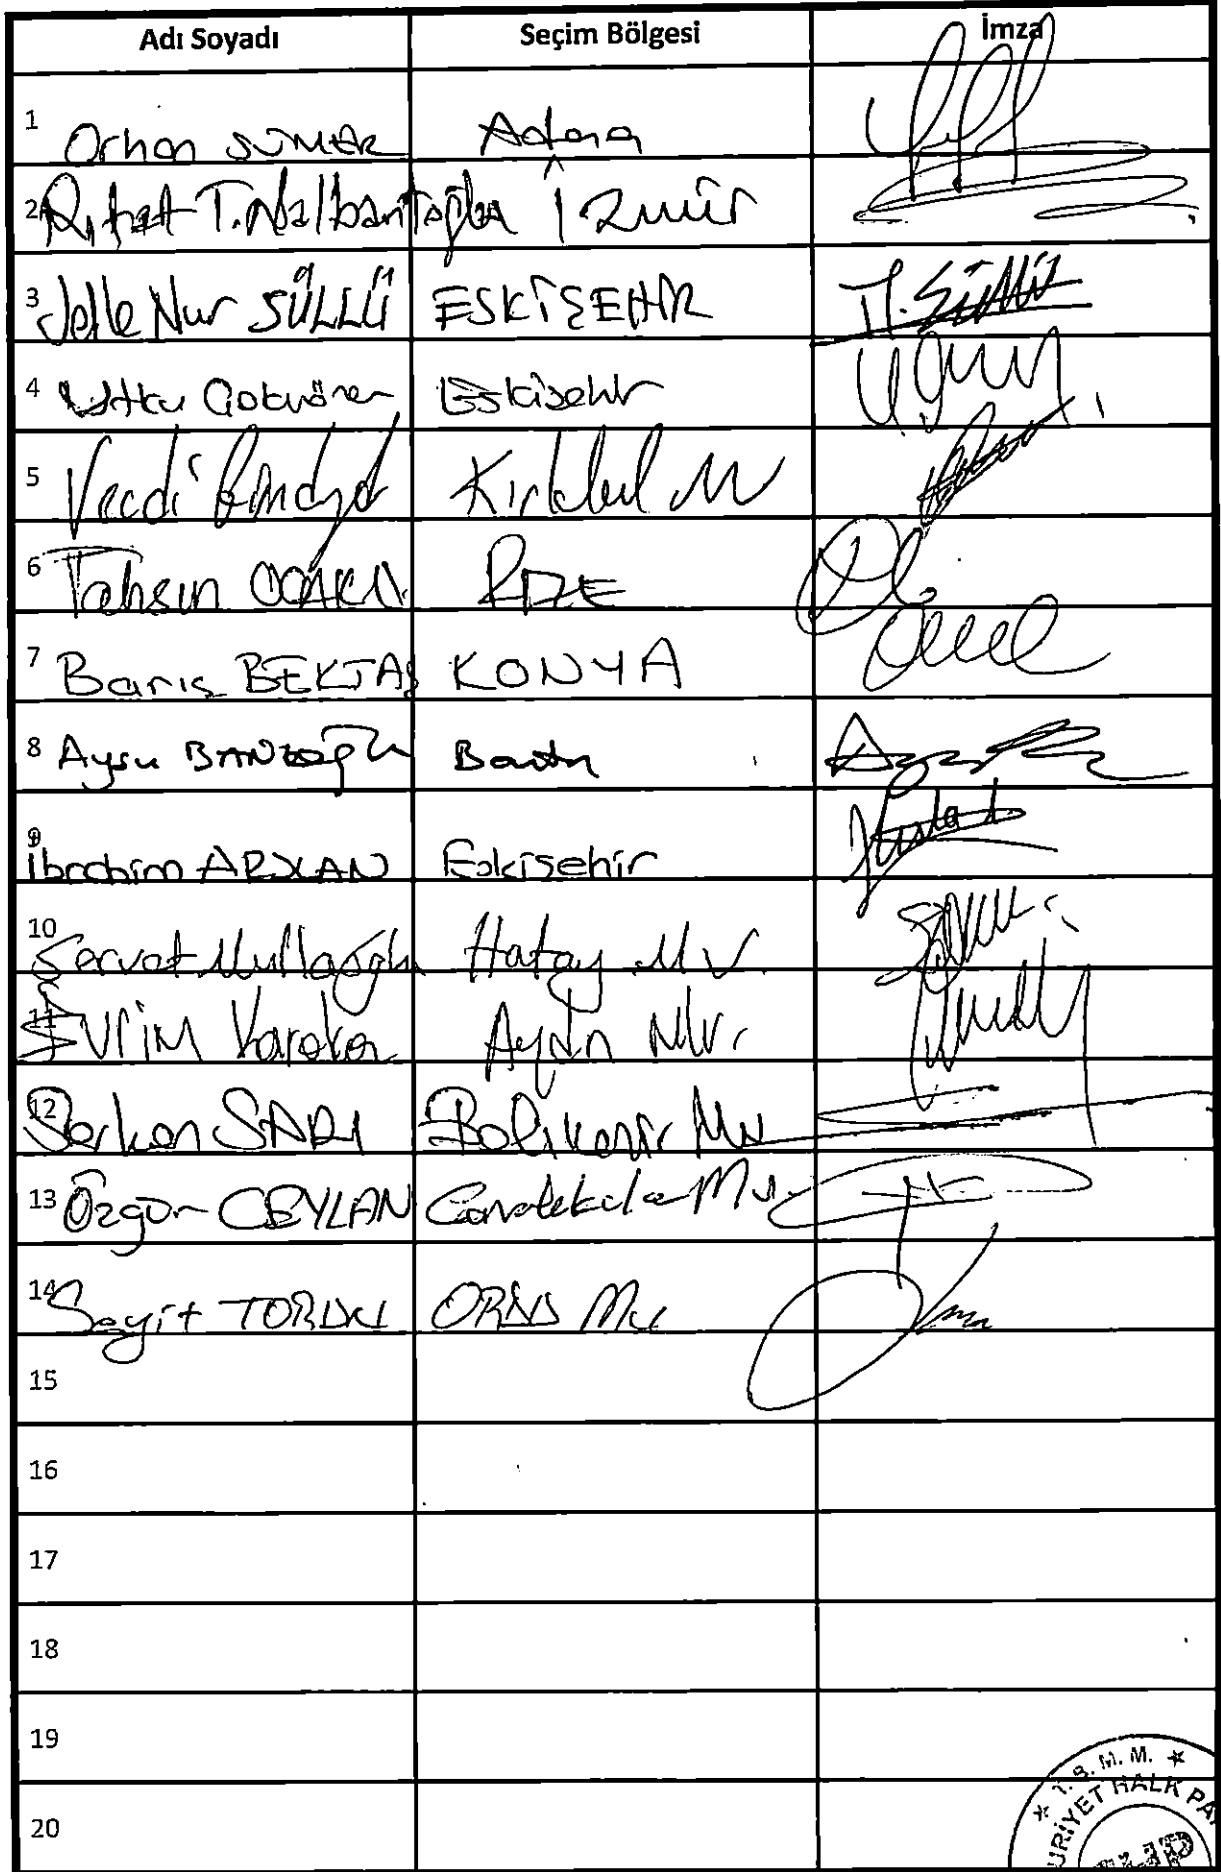 Adı Soyadı Seçim Bölgesi İmza
1 Orhan SÜMER Adana
2 Rıfat T. Nalbantoğlu İzmir
3 Jale Nur SÜLLÜ ESKİŞEHİR J. Süllü
4 Utku Eskişehir
5 Vecdi Kırklareli M
6 Tahsin OCAKLI RİZE
7 Barış BEKTAŞ KONYA
8 Aysu BANKOĞLU Bartın
9 İbrahim ARSLAN Eskişehir
10 Servet Mullaoğlu Hatay M.V.
11 Evrim Karakoz Aydın Mv.
12 Serkan SARI Balıkesir Mv
13 Özgür CEYLAN Çanakkale Mv.
14 Seyit TORUN ORDU Mv
15
16
17
18
19
20
★ T.B.M.M. ★
URİYET HALK PA